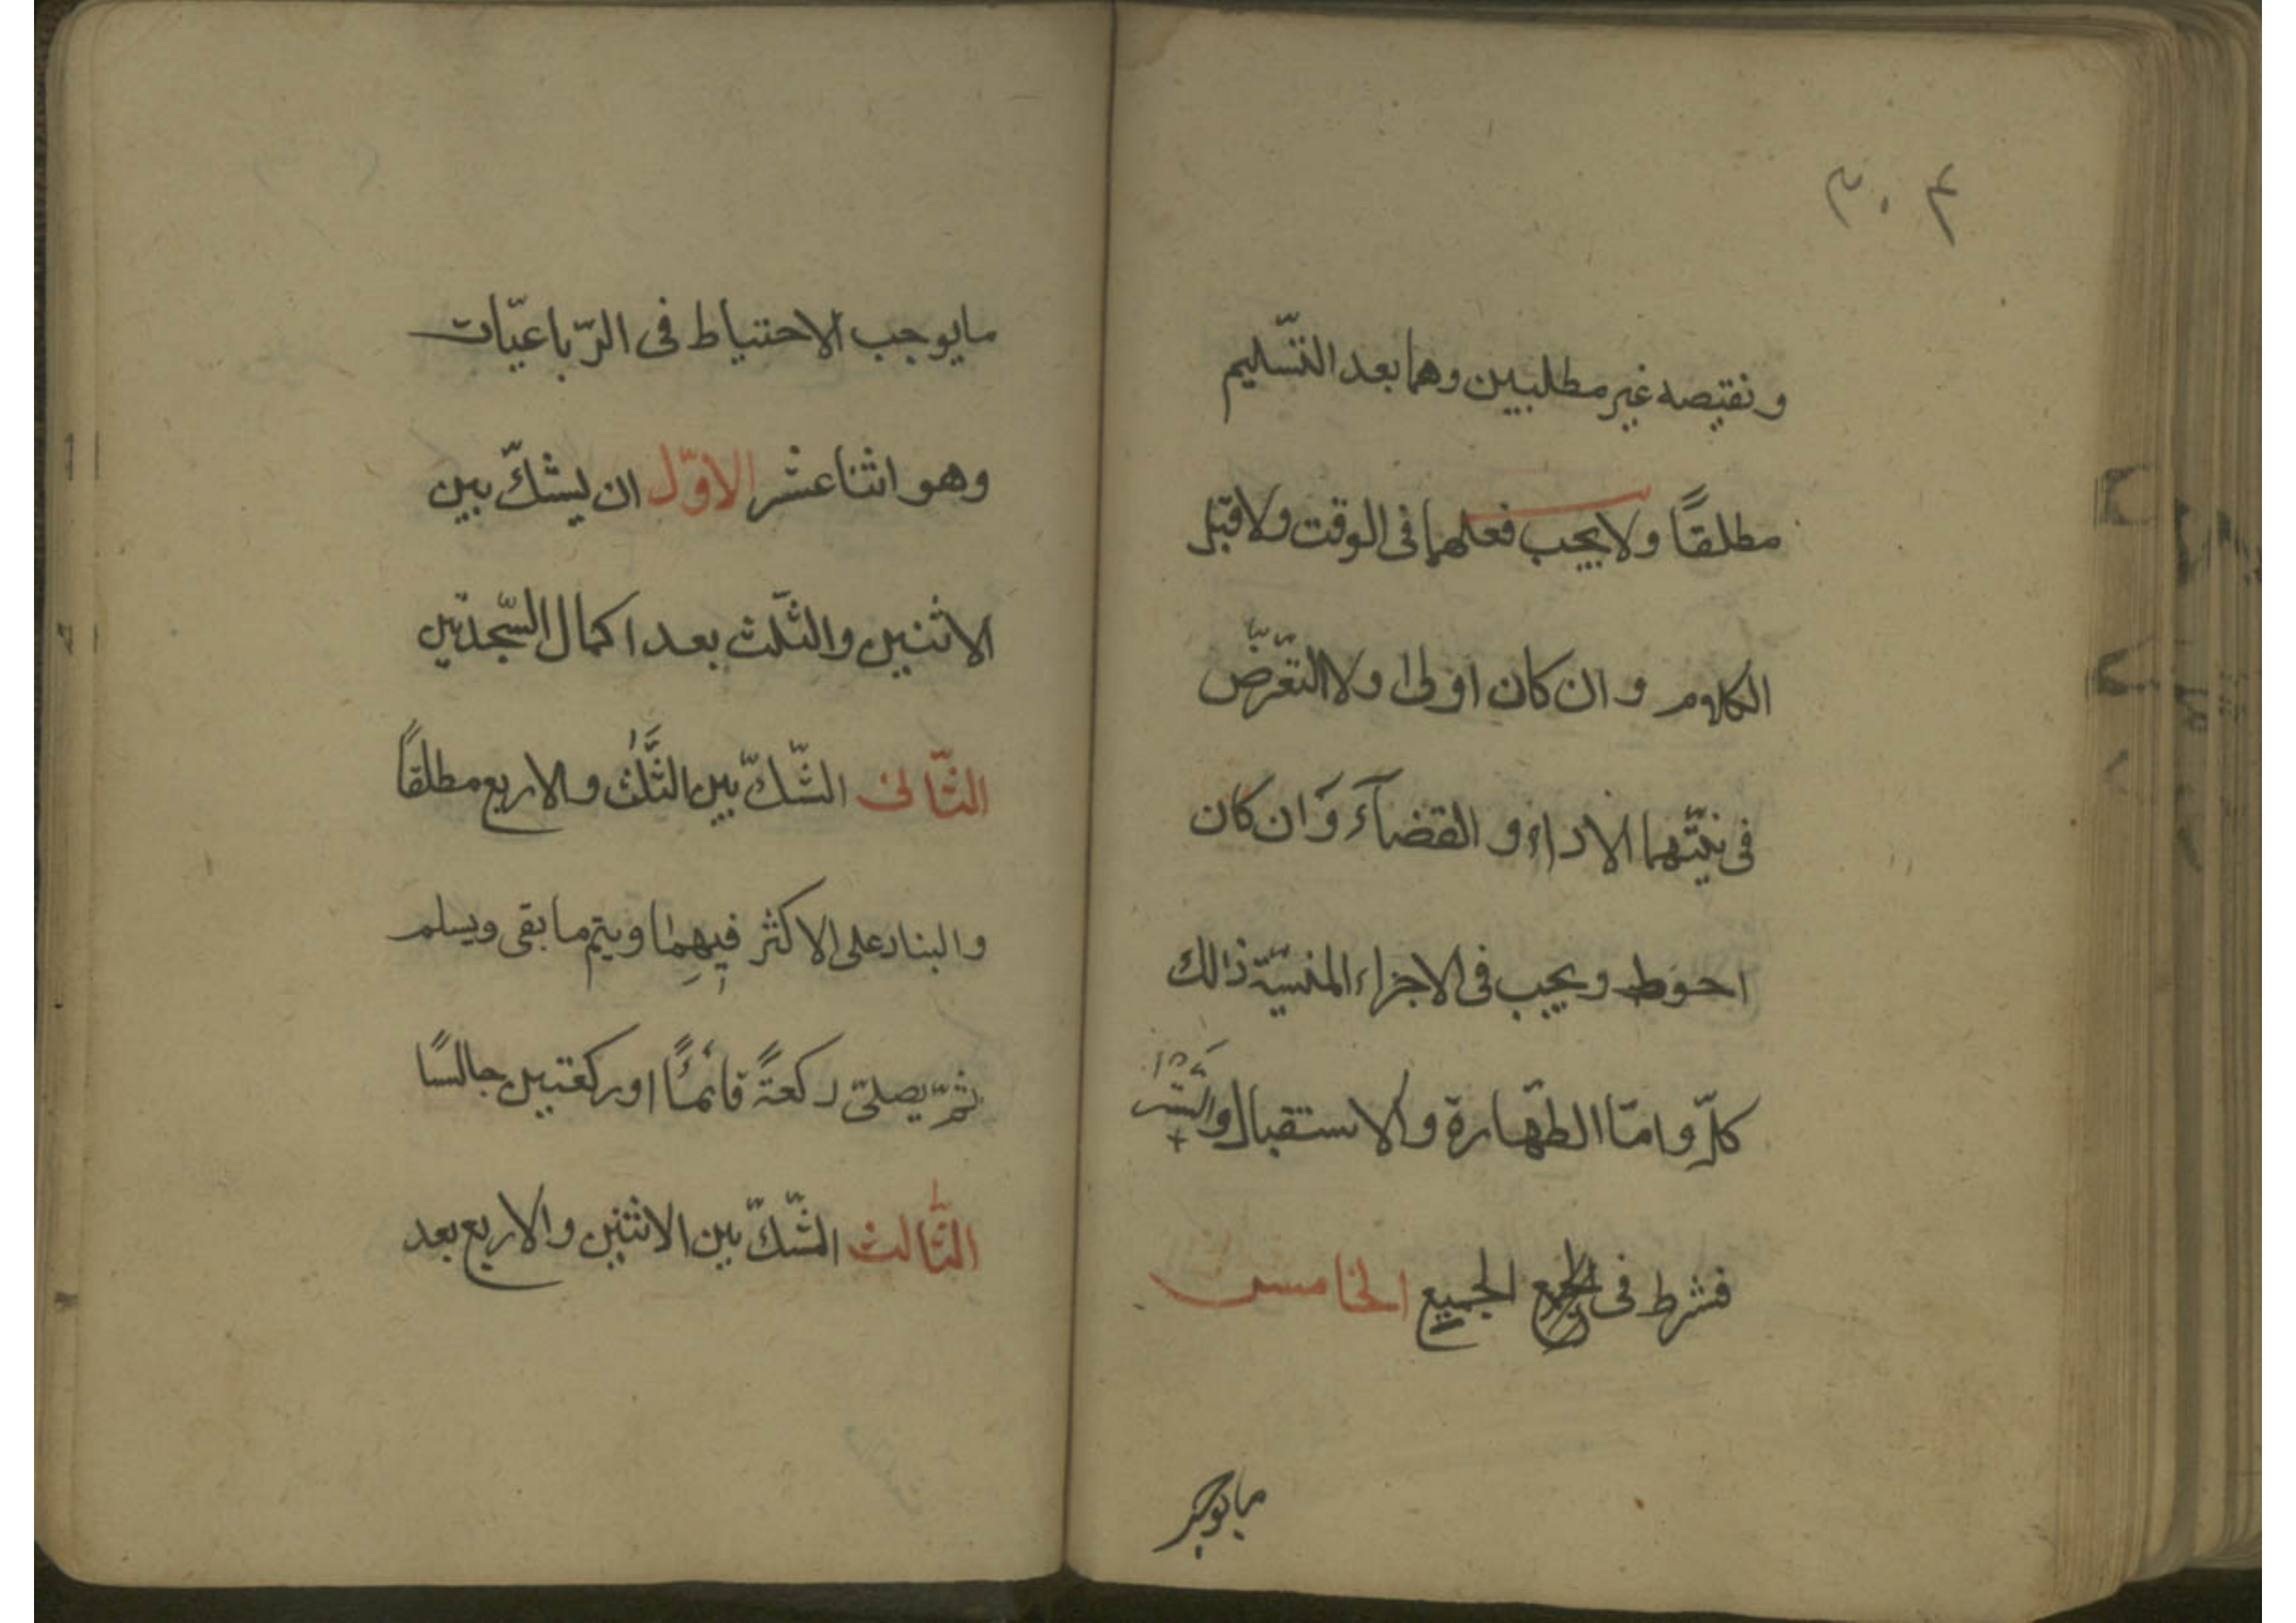 ٣٠٤
و نقيصه غير مطلبين وهما بعد التّسليم
مطلقًا ولا يجب فعلهما فى الوقت ولا قبل
الكلام و ان كان اولى ولا التعّرّض
فى نيّتهما الاداء و القضآء وَ ان كان
احوط ويجب فى الاجزاء المنسيّة ذالك
كلّ و امّا الطّهارة والاستقبال والسّتر
فشرط فى الجميع الخامس
مايوجب
مايوجب الاحتياط فى الرّباعيّات
وهو اثنا عشر الاوّل ان يشكّ بين
الاثنين والثّلث بعد اكمال السّجدتين
الثّانى الشّكّ بين الثَّلٰث والاربع مطلقاً
والبناء على الاكثر فيهِمٰا ويتم ما بقى ويسلم
ثمّ يصلّى ركعةً قائمًا او ركعتين جالسًا
الثّالث الشّكّ بين الاثنين والاربع بعد